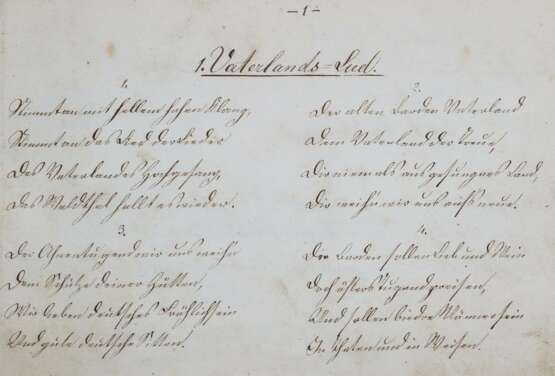 — 1 —
1. Vaterlands=Lied.
1.
Stimmt an mit hellem hohen Klang,
Stimmt an das Lied der Lieder
Des Vaterlandes Hochgesang,
Das Waldthal hallt es wieder.
2.
Der alten Barden Vaterland
Dem Vaterland der Treue,
Dir niemals ausgesungnes Land,
Dir weih'n wir uns aufs neue.
3.
Der Ahnentugend wir uns weih'n
Dem Schutze deiner Hütten,
Wir lieben deutsches Fröhlichsein
Und gute deutsche Sitten.
4.
Die Barden sollen Lieb und Wein
Doch öfters Tugend preisen,
Und sollen biedre Männer sein
In Thaten und in Weisen.